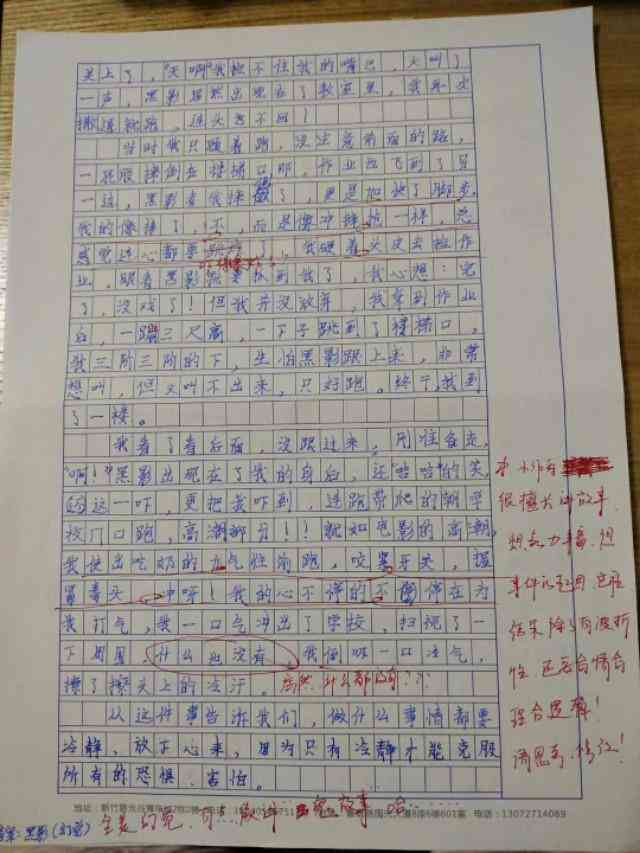 关上了，“天啊”我控不住我的嘴巴，大叫了
一声，黑影居然出现在了教室里，我
腿就跑，连头也不回！
当时我只顾着跑，没注意前面的路，
一屁股摔倒在楼梯口那，作业也飞到了另
一边，黑影看我摔倒了，更是加快了脚步，
我的像摔了，不，而是像冲锋枪一样，
感觉连心都要跳了，我硬着头皮去捡作
业，眼看黑影就要抓到我了，我心想：完
了，没戏了！但我并没放弃，我拿到作业
后，一蹦三尺高，一下子跳到了楼梯口，
我三阶三阶的下，生怕黑影跟上来，非常
想叫，但又叫不出来，只好跑。终于，我到
了一楼。
我看了看后面，没跟过来，刚往
“啊！”黑影出现在了我的身后，还“哈哈”的笑，
这一吓，更把我吓到，连跑带爬的朝学
校门口跑，高潮部分！！就如电影的高潮，
我使出吃奶的力气往前跑，咬紧牙关，握
紧拳头，冲呀！我的心不停的不停在为
我打气，我一口气冲出了学校，扫视了一
下周围，什么也没有，我倒吸一口冷气，
擦了擦头上的冷汗。居然什么都没有？？
从这件事告诉我们，做什么事情都要
冷静，放下心来，因为只有冷静才能克服
所有的恐惧、害怕。
本作有
很擅长讲故事
想象力丰富，但
事件的起因、经过
结果除了有波折
性，还要合情合
理合逻辑！
请思考，修改！
电话：13072714069
黑影（幻觉）